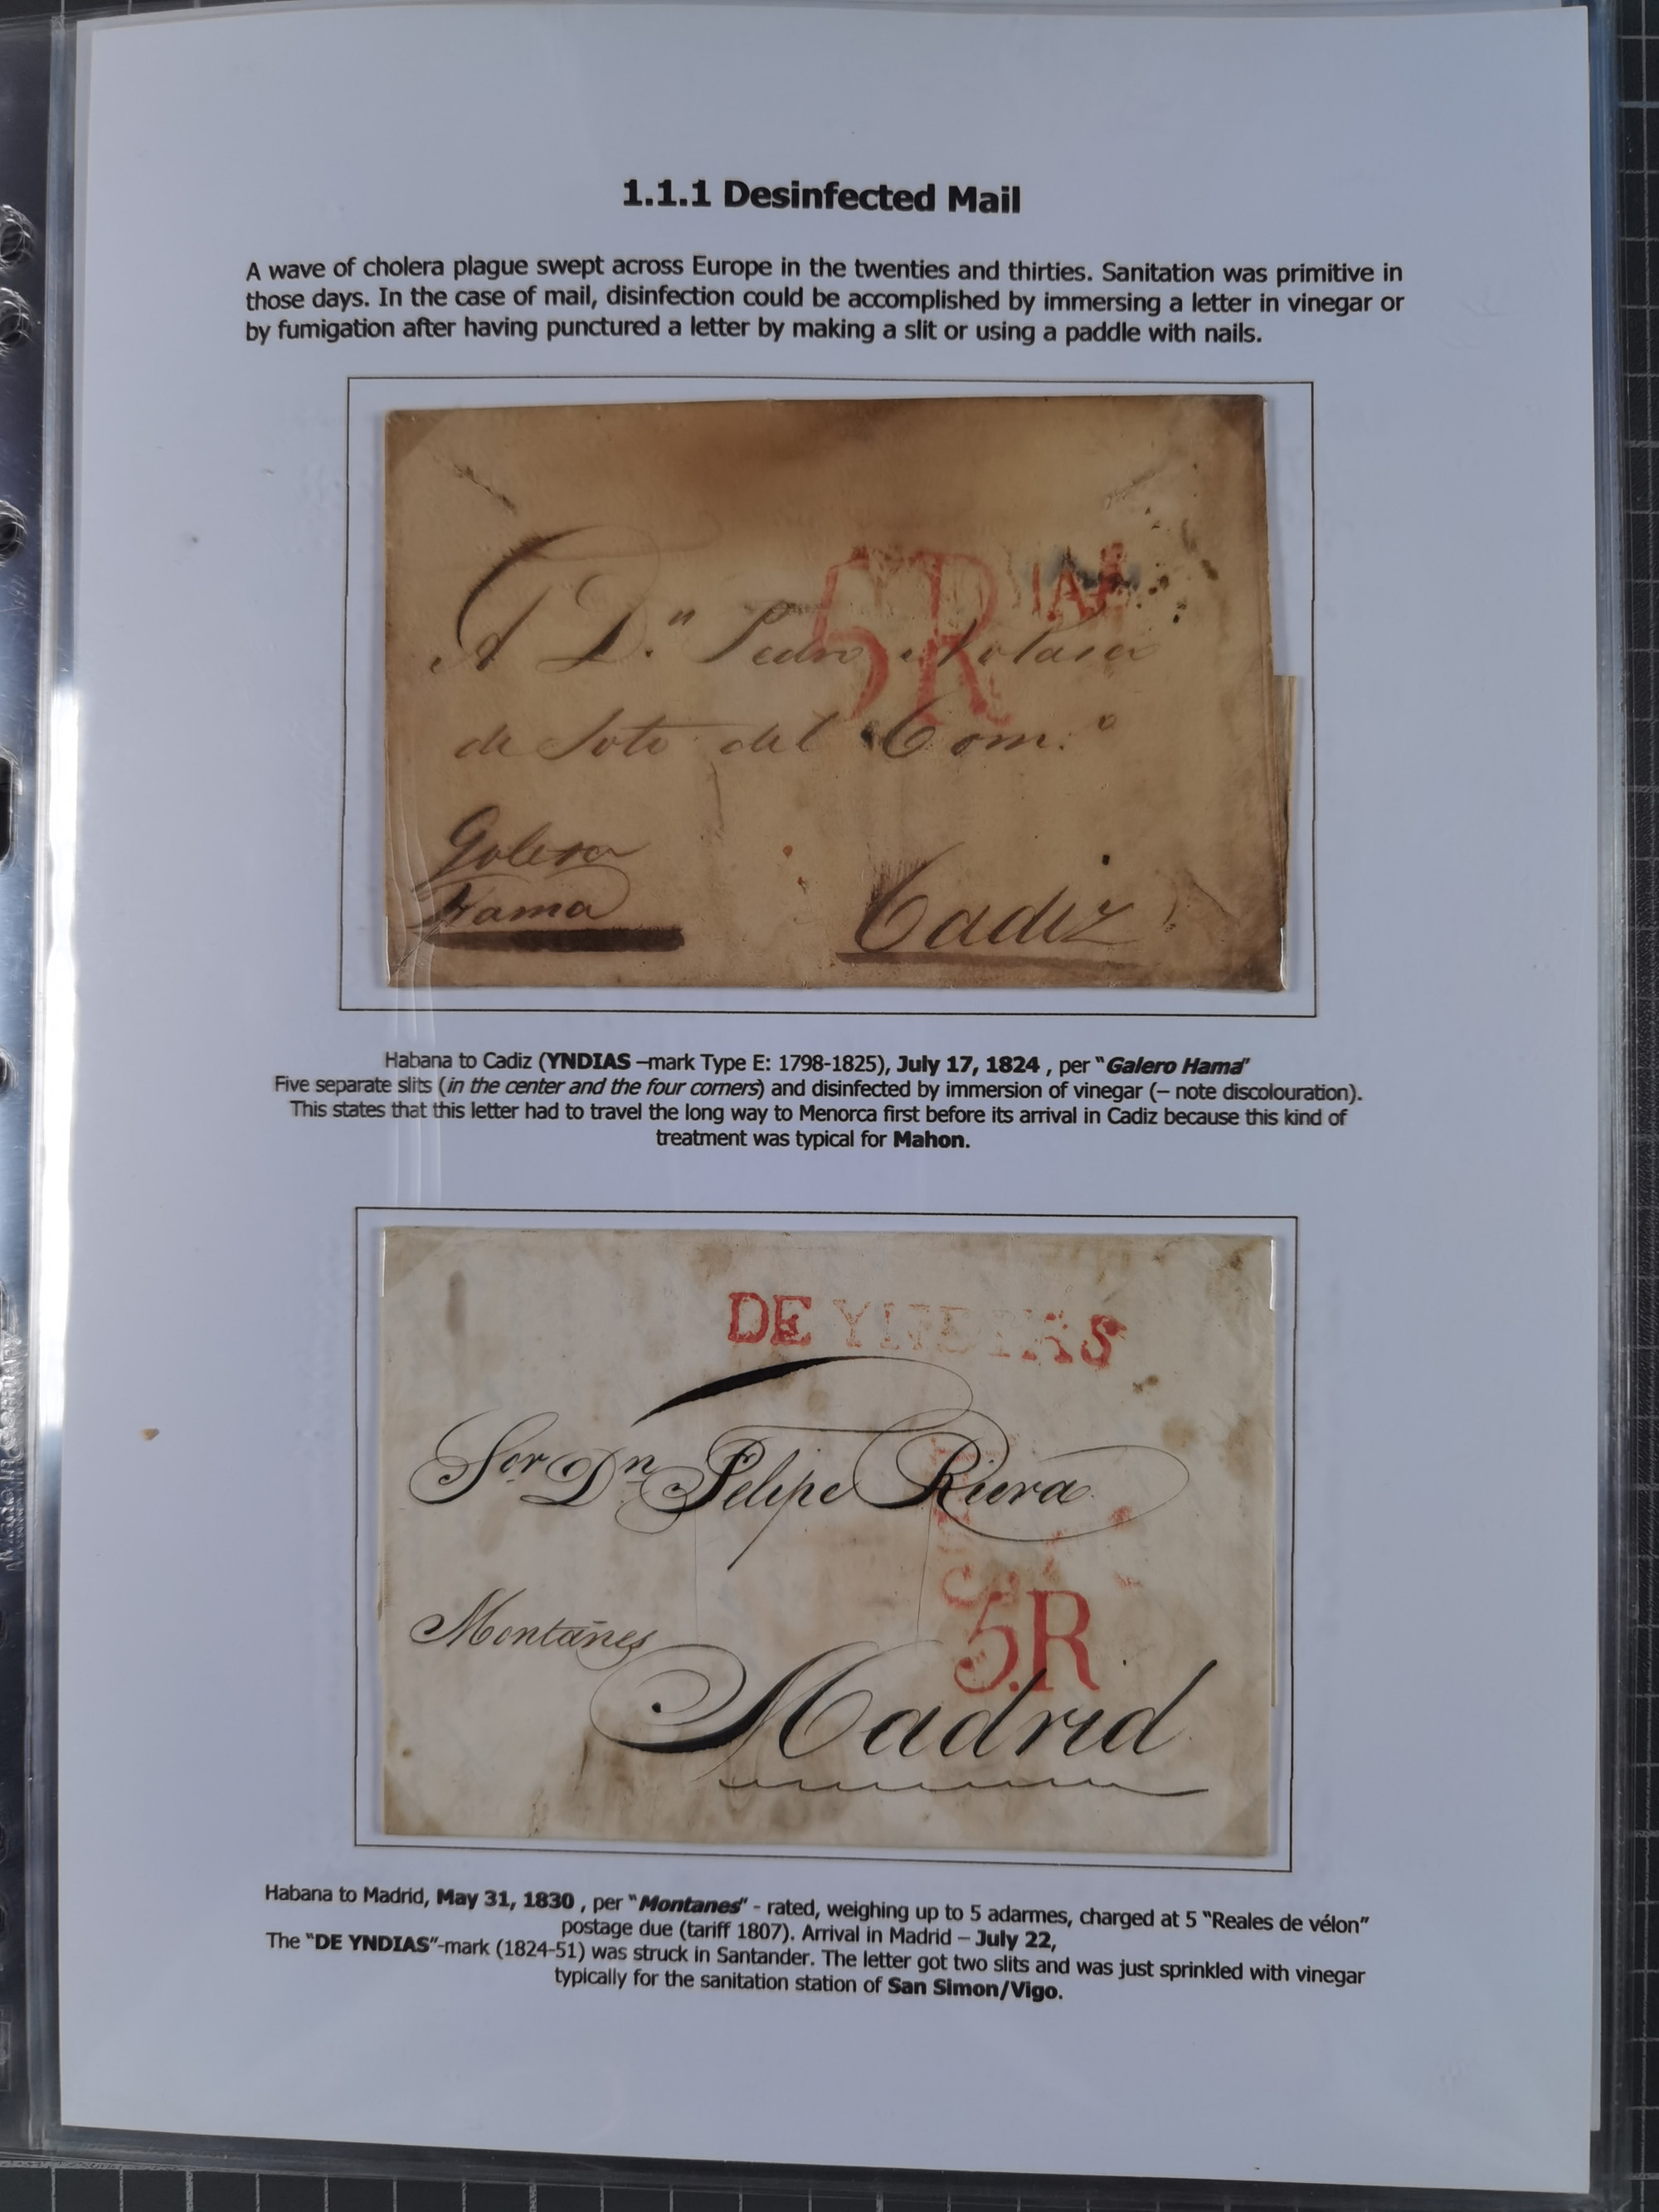 1.1.1 Desinfected Mail
A wave of cholera plague swept across Europe in the twenties and thirties. Sanitation was primitive in
those days. In the case of mail, disinfection could be accomplished by immersing a letter in vinegar or
by fumigation after having punctured a letter by making a slit or using a paddle with nails.
5R IAS
A Dn. Pedro Nolasco
de Soto del Com.o
Galera
Fama
Cadiz
Habana to Cadiz (YNDIAS –mark Type E: 1798-1825), July 17, 1824 , per “Galero Hama”
Five separate slits (in the center and the four corners) and disinfected by immersion of vinegar (– note discolouration).
This states that this letter had to travel the long way to Menorca first before its arrival in Cadiz because this kind of
treatment was typical for Mahon.
DE YNDIAS
Sor Dn Felipe Riera
5R
Montañes
Madrid
Habana to Madrid, May 31, 1830 , per “Montanes” - rated, weighing up to 5 adarmes, charged at 5 “Reales de vélon”
postage due (tariff 1807). Arrival in Madrid – July 22,
The “DE YNDIAS”-mark (1824-51) was struck in Santander. The letter got two slits and was just sprinkled with vinegar
typically for the sanitation station of San Simon/Vigo.